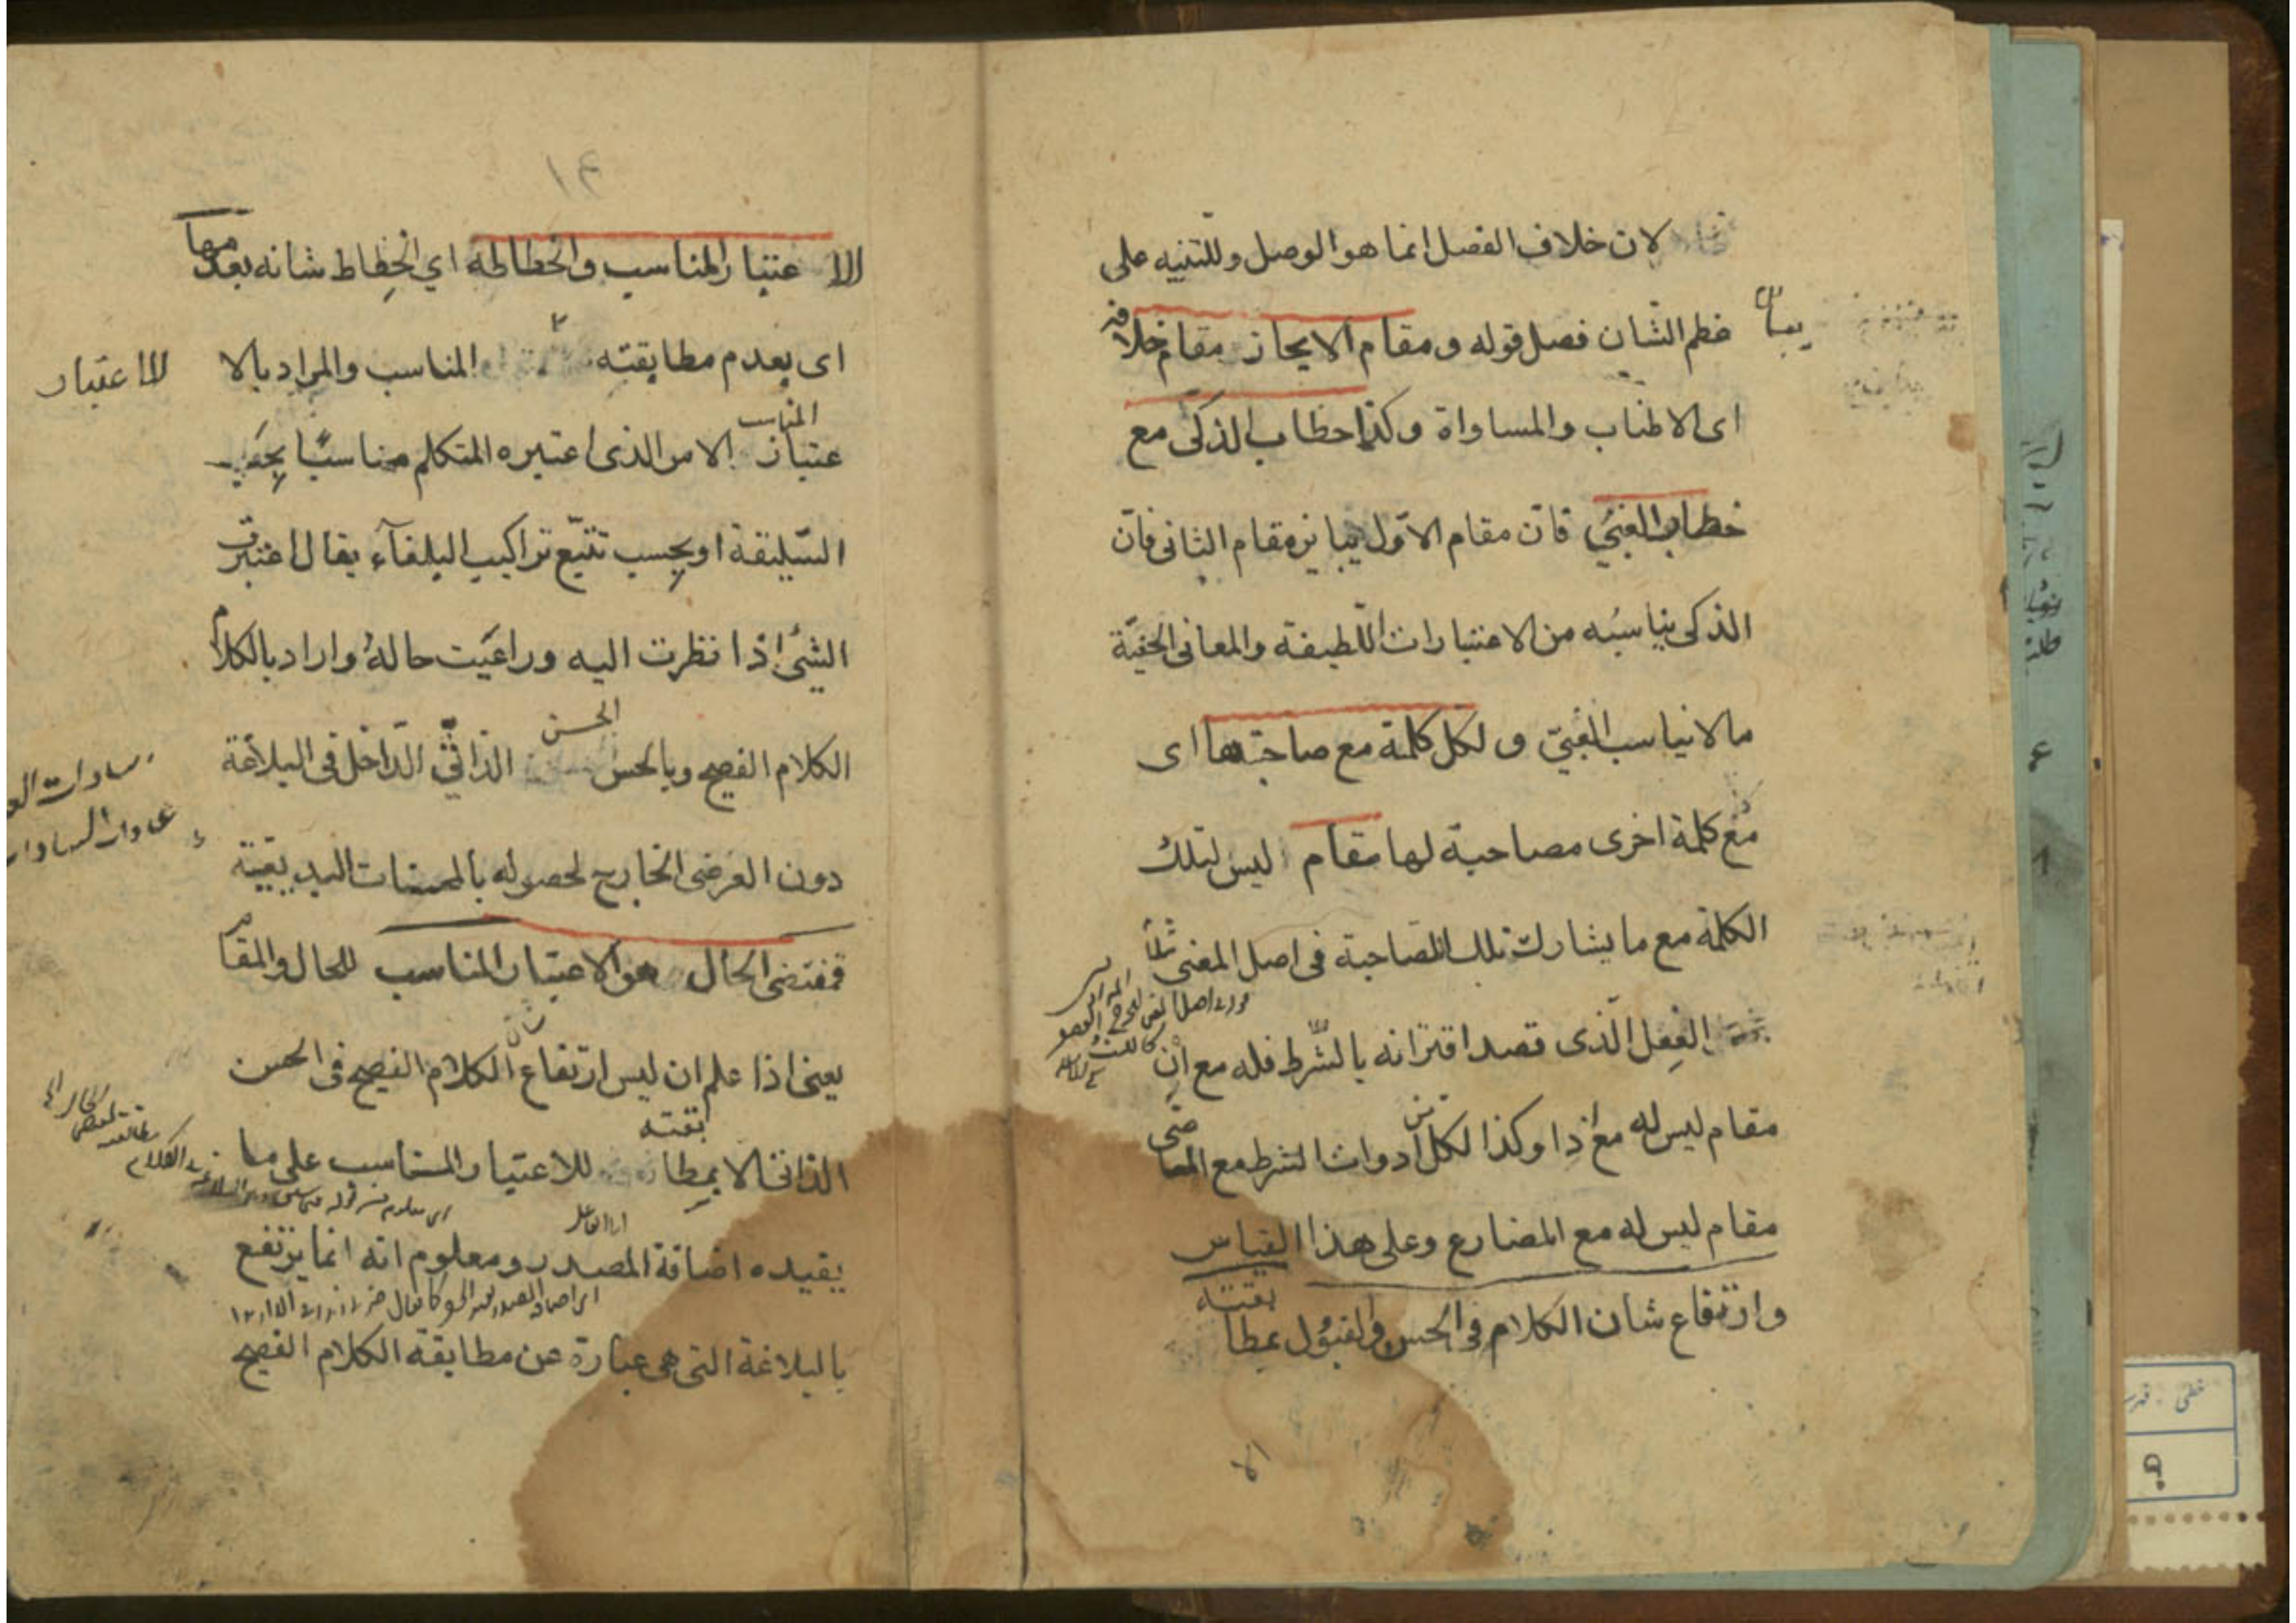 لان خلاف الفصل انما هو الوصل وللتنبيه على
عظم الشان فصل قوله ومقام الايجاز مقام خلافه
اى الاطناب والمساواة وكذا خطاب الذكى مع
خطاب الغبي فان مقام الاول يباين مقام الثانى فان
الذكى يناسبه من الاعتبارات اللطيفة والمعانى الخفية
ما لا يناسب الغبي ولكل كلمة مع صاحبتها اى
مع كلمة اخرى مصاحبة لها مقام ليس لتلك
الكلمة مع ما يشارك تلك المصاحبة فى اصل المعنى مثلا
الفعل الذى قصد اقترانه بالشرط فله مع ان
مقام ليس له مع اذا وكذا لكل من ادوات الشرط مع الماضى
مقام ليس له مع المضارع وعلى هذا القياس
وارتفاع شان الكلام فى الحسن والقبول بمطابقته
الا
١٣
الاعتبار المناسب وانحطاطه اي انحطاط شانه بعدمها
اى بعدم مطابقته المناسب والمراد بالا
للاعتبار
عتبار المناسب الامر الذى اعتبره المتكلم مناسبًا بحسب
السليقة او بحسب تتبع تراكيب البلغآء يقال اعتبرت
الشئ اذا نظرت اليه وراعيت حاله واراد بالكلام
الكلام الفصيح وبالحسن الحسن الذاتي الداخل فى البلاغة
دون العرضى الخارج لحصوله بالمحسنات البديعية
فمقتضى الحال هو الاعتبار المناسب للحال والمقام
يعنى اذا علم ان ليس ارتفاع شان الكلام الفصيح فى الحسن
الذاتى الا بمطابقته للاعتبار المناسب على ما
يفيده اضافة المصدر ومعلوم انه انما يرتفع
بالبلاغة التى هى عبارة عن مطابقة الكلام الفصيح